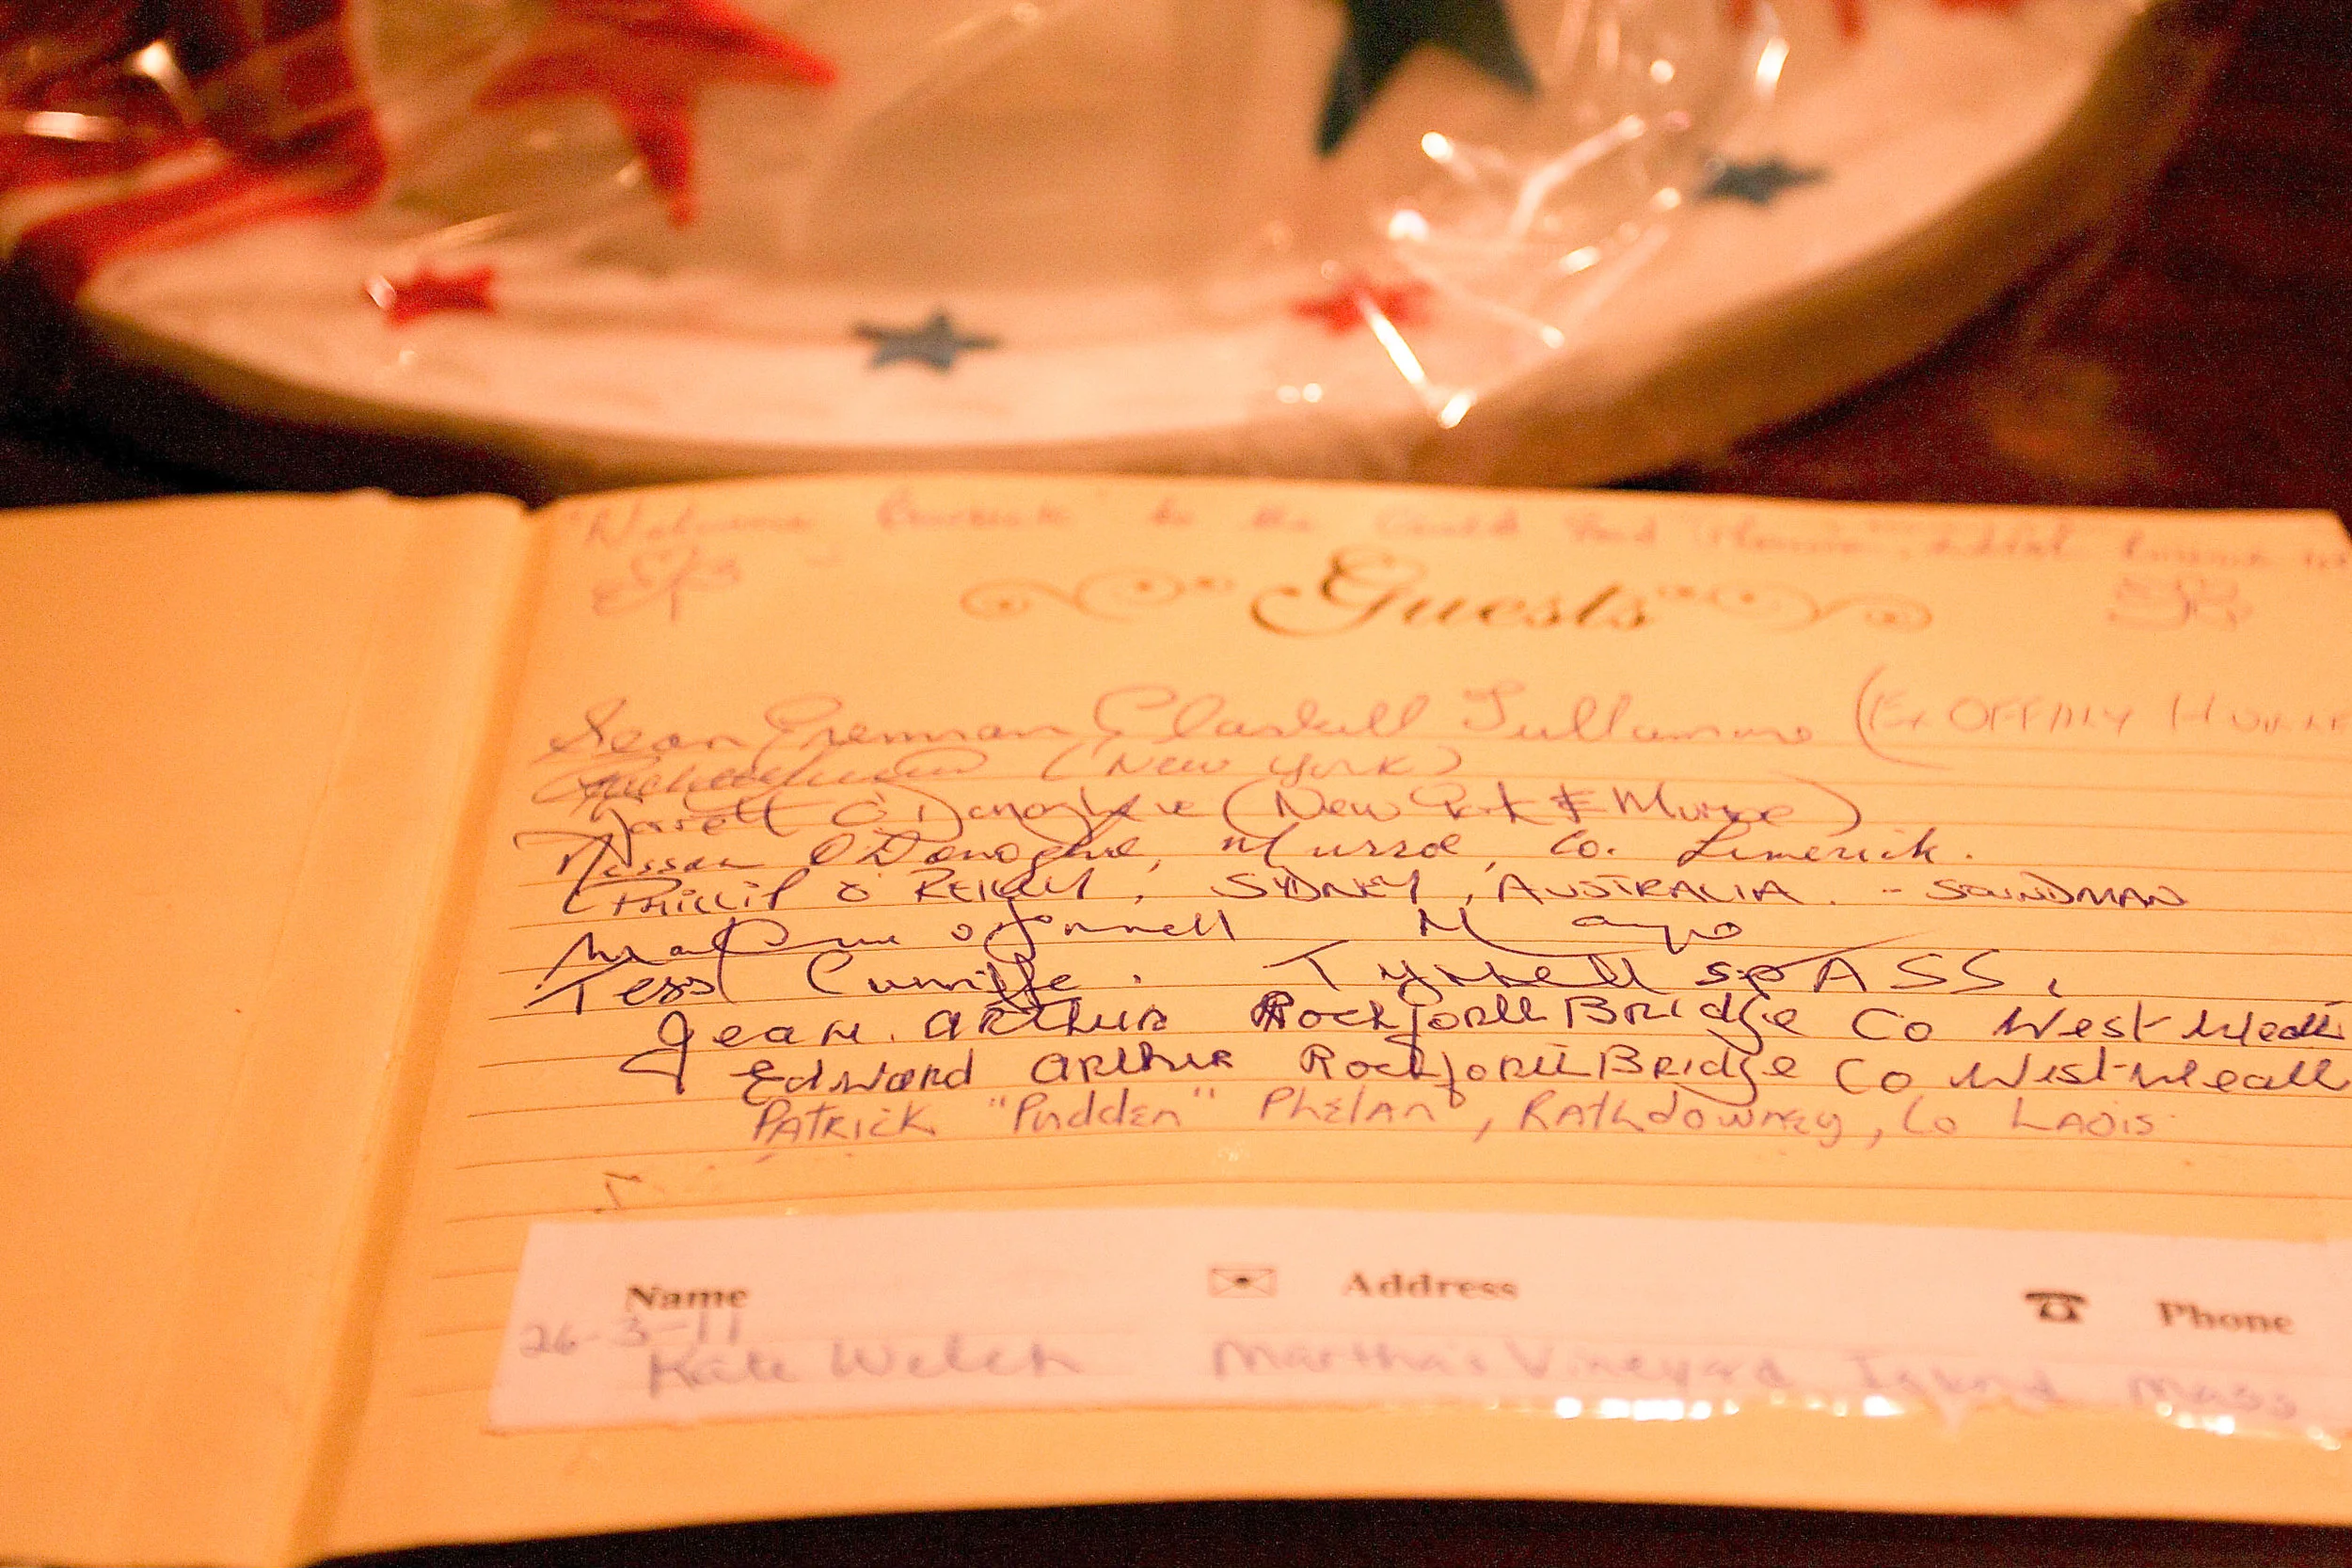 "Welcome Barrick" to the
Guests
Sean Grennan Claskill Tullamore (Ex OFFALY
(New York)
Garrett O'Donoghue (New York & Murroe)
Nessan O'Donoghue, Murroe, Co. Limerick.
PHILLIP O'REILLY, SYDNEY, AUSTRALIA. - SOUNDMAN
O'Donnell Mayo
Tess Cunniffe. Tyrrellspass,
Jean. Arthur RochfortBridge Co West-Meath
Edward Arthur RochfortBridge Co West-Meath
PATRICK "Pudden" Phelan, RAthdowney, Co LAOIS
Name Address Phone
26-3-11
Kate Welch Martha's Vineyard Island Mass